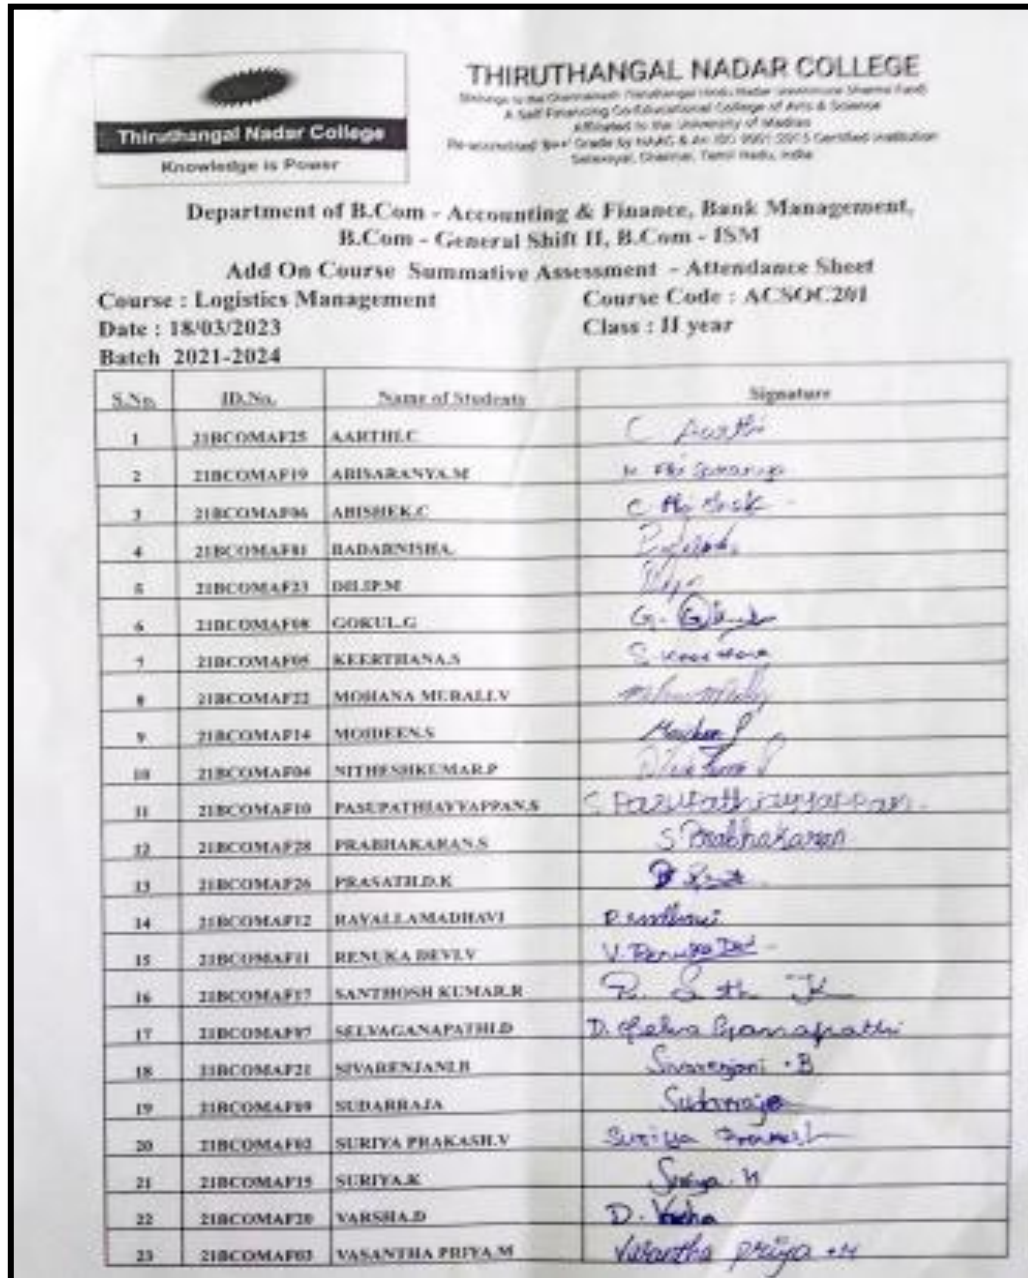 Thiruthangal Nadar College
Knowledge is Power
THIRUTHANGAL NADAR COLLEGE
A Self Financing Co-Educational College of Arts & Science
Affiliated to the University of Madras
Re-accredited Grade by NAAC & An ISO 9001:2015 Certified Institution
Selavayal, Chennai, Tamil Nadu, India
Department of B.Com - Accounting & Finance, Bank Management,
B.Com - General Shift II, B.Com - ISM
Add On Course Summative Assessment - Attendance Sheet
Course : Logistics Management Course Code : ACSOC201
Date : 18/03/2023 Class : II year
Batch 2021-2024
S.No. ID.No. Name of Students Signature
1 21BCOMAF25 AARTHI.C C Aarthi
2 21BCOMAF19 ABISARANYA.M
3 21BCOMAF06 ABISHEK.C
4 21BCOMAF01 BADARNISHA.
5 21BCOMAF23 DILIP.M
6 21BCOMAF08 GOKUL.G
7 21BCOMAF05 KEERTHANA.S
8 21BCOMAF22 MOHANA MURALI.V
9 21BCOMAF14 MOIDEEN.S
10 21BCOMAF04 NITHESHKUMAR.P
11 21BCOMAF10 PASUPATHIAYYAPPAN.S S Pasupathiayyappan.
12 21BCOMAF28 PRABHAKARAN.S S Prabhakaran
13 21BCOMAF26 PRASATH.D.K
14 21BCOMAF12 RAYALLAMADHAVI
15 21BCOMAF11 RENUKA DEVI.V V. Renuka Devi
16 21BCOMAF17 SANTHOSH KUMAR.R
17 21BCOMAF07 SELVAGANAPATHI.D D. Selva Ganapathi
18 21BCOMAF21 SIVARENJANI.B Sivarenjani . B
19 21BCOMAF09 SUDARRAJA Sudarraja
20 21BCOMAF02 SURIYA PRAKASH.V Suriya Prakash
21 21BCOMAF15 SURIYA.K Suriya. K
22 21BCOMAF20 VARSHA.D D. Varsha
23 21BCOMAF03 VASANTHA PRIYA.M Vasantha Priya .M